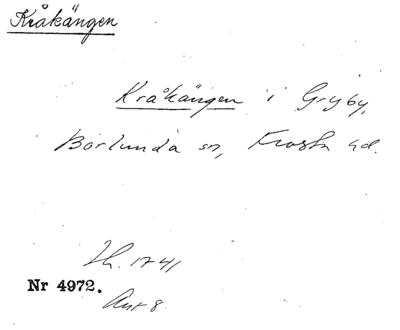 Kråkängen
Kråkängen i Gryby,
Borlunda sn, Frosta hd.
Lh. 1741
Nr 4972.
Akt 8